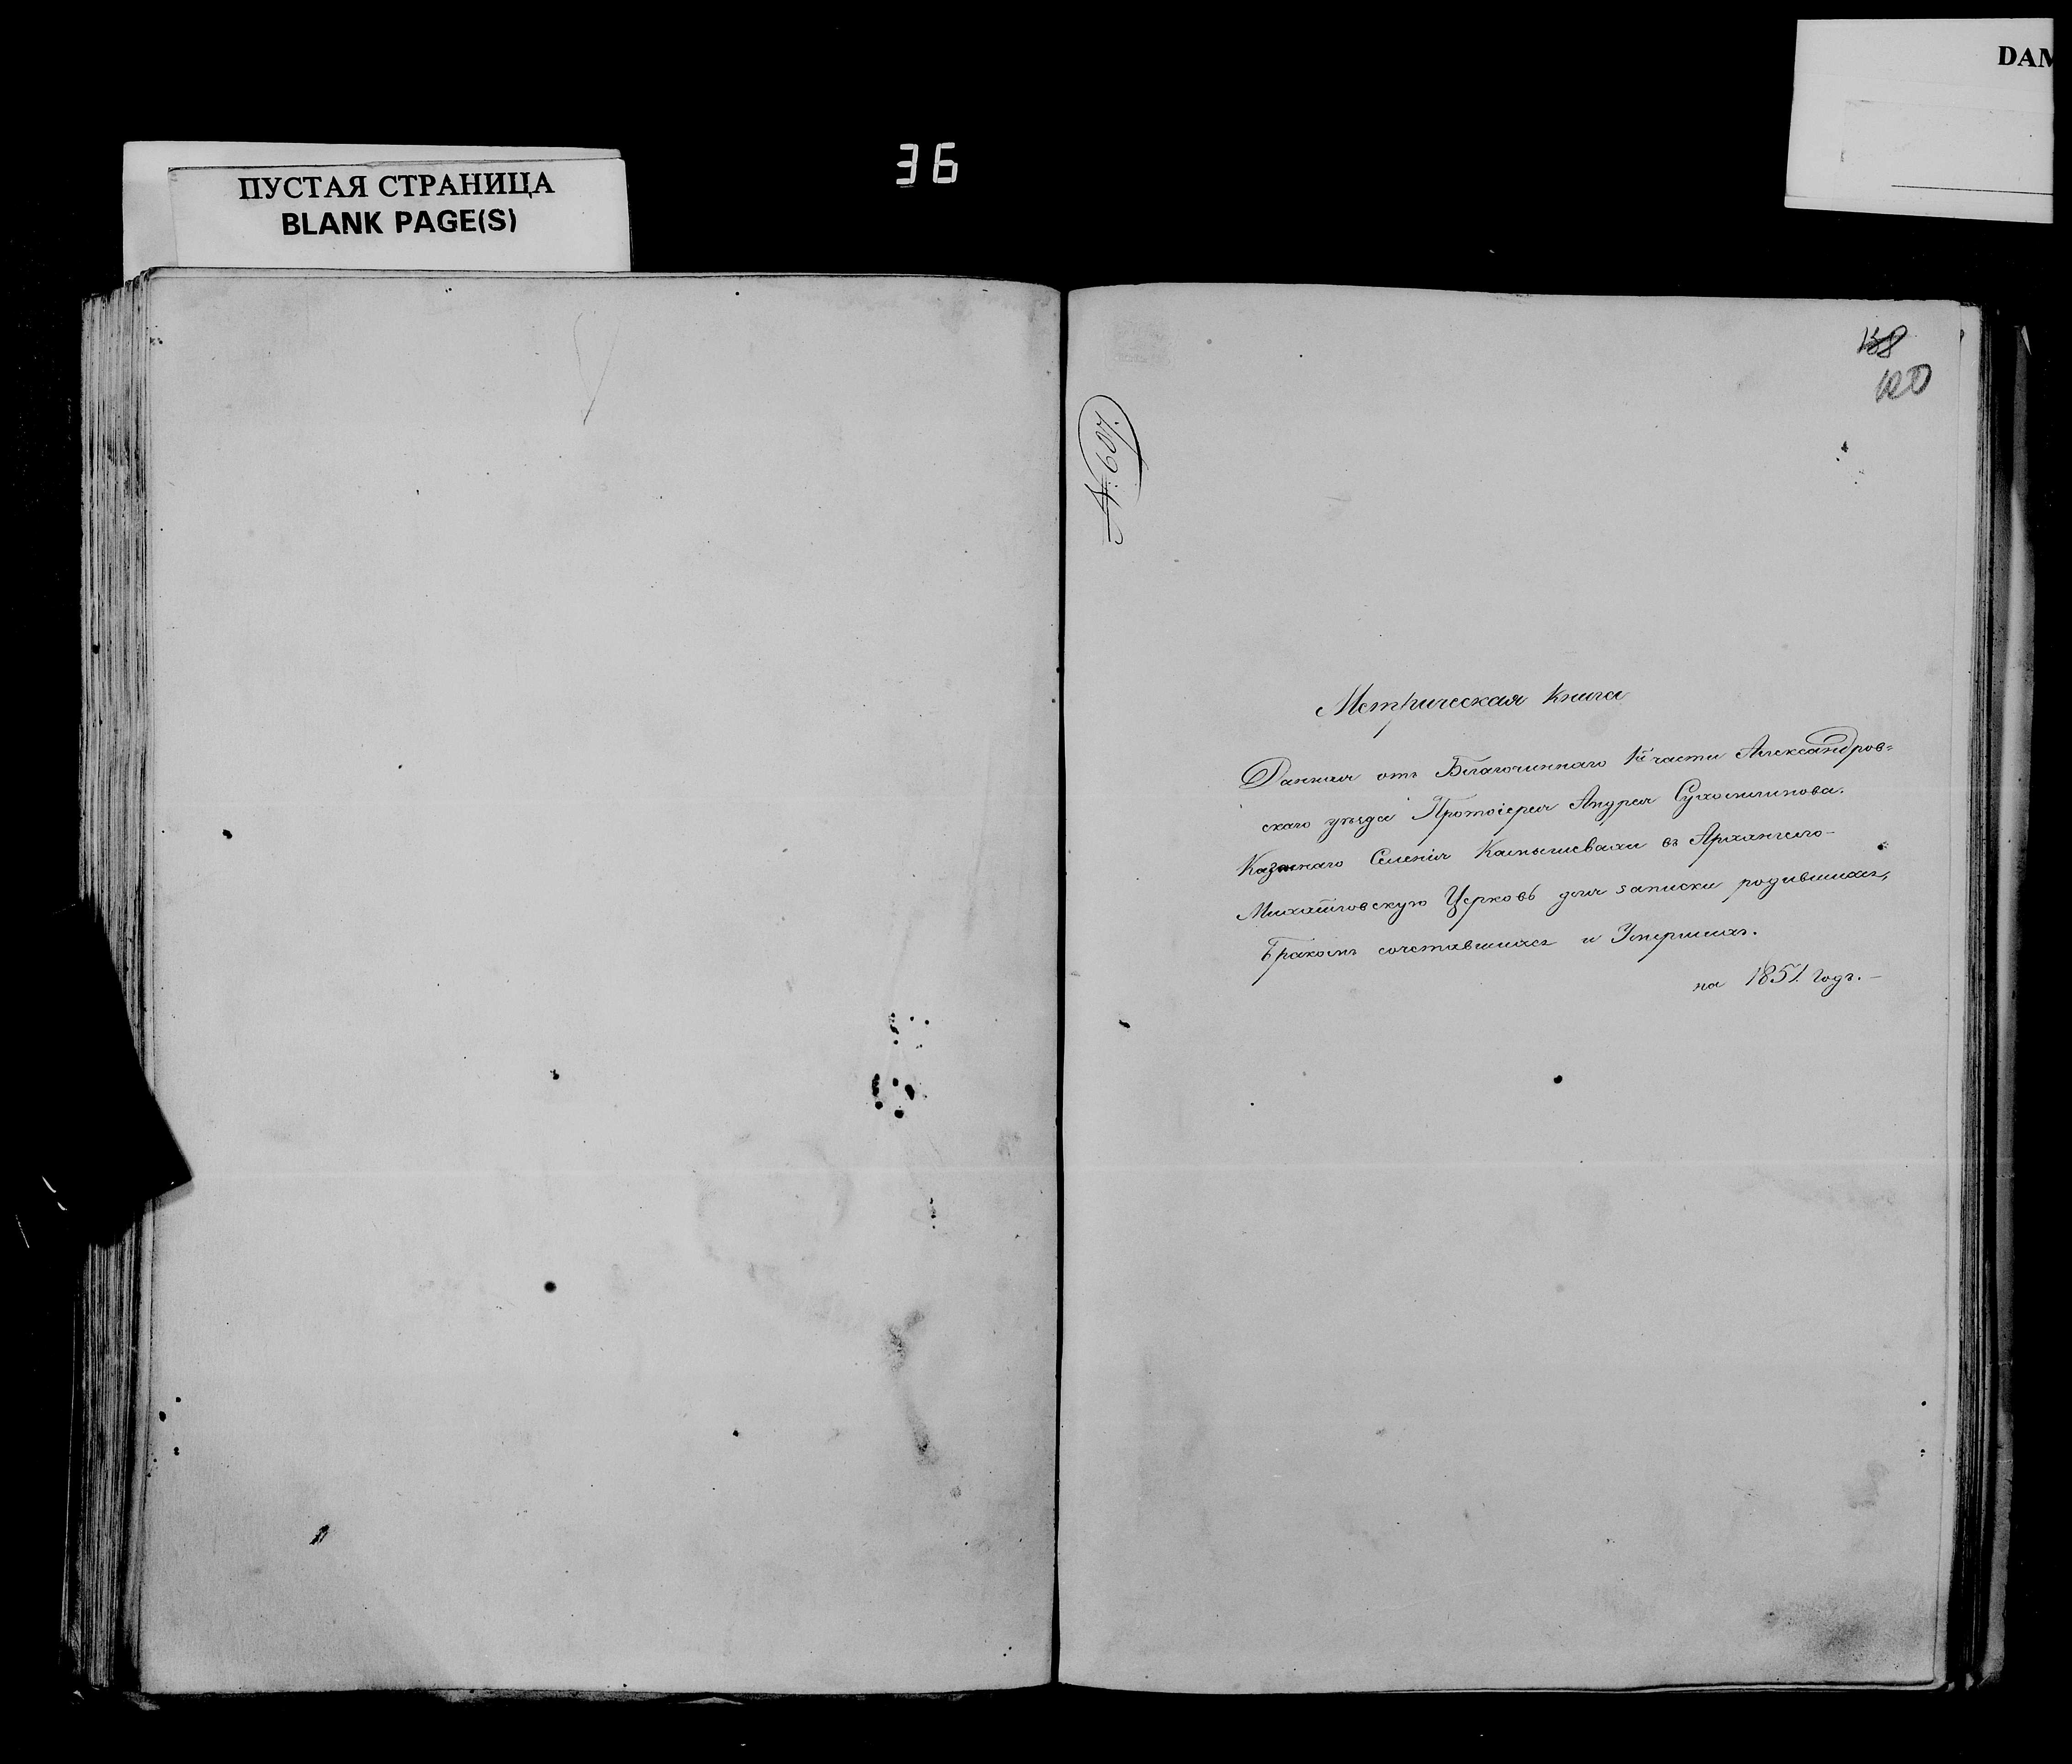 DAM
36
ПУСТАЯ СТРАНИЦА
BLANK PAGE(S)
158
120
№ 602.
Метрическая книга
Данная отъ Благочиннаго 1й части Александров=
скаго уѣзда Протоіерея Андрея Сухомлинова.
Казеннаго Селенія Камышевахи въ Архангело-
Михайловскую Церковь для записки родившихся,
Бракомъ сочетавшихся и Умершихъ.
на 1851. годъ.-